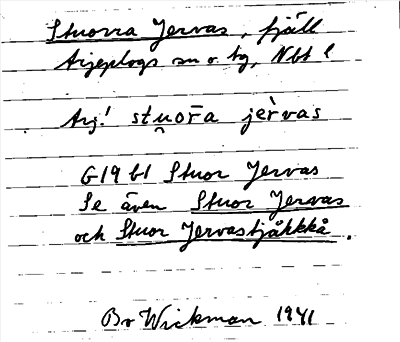 Stuorra Jervas, fjäll
Arjeplogs sn o. tg, Nbt l
Arj! stu̮or̄a jer̀vas
G19 bl Stuor Jervas
Se även Stuor Jervas
och Stuor Jervastjåkkå.
Bo Wickman 1941